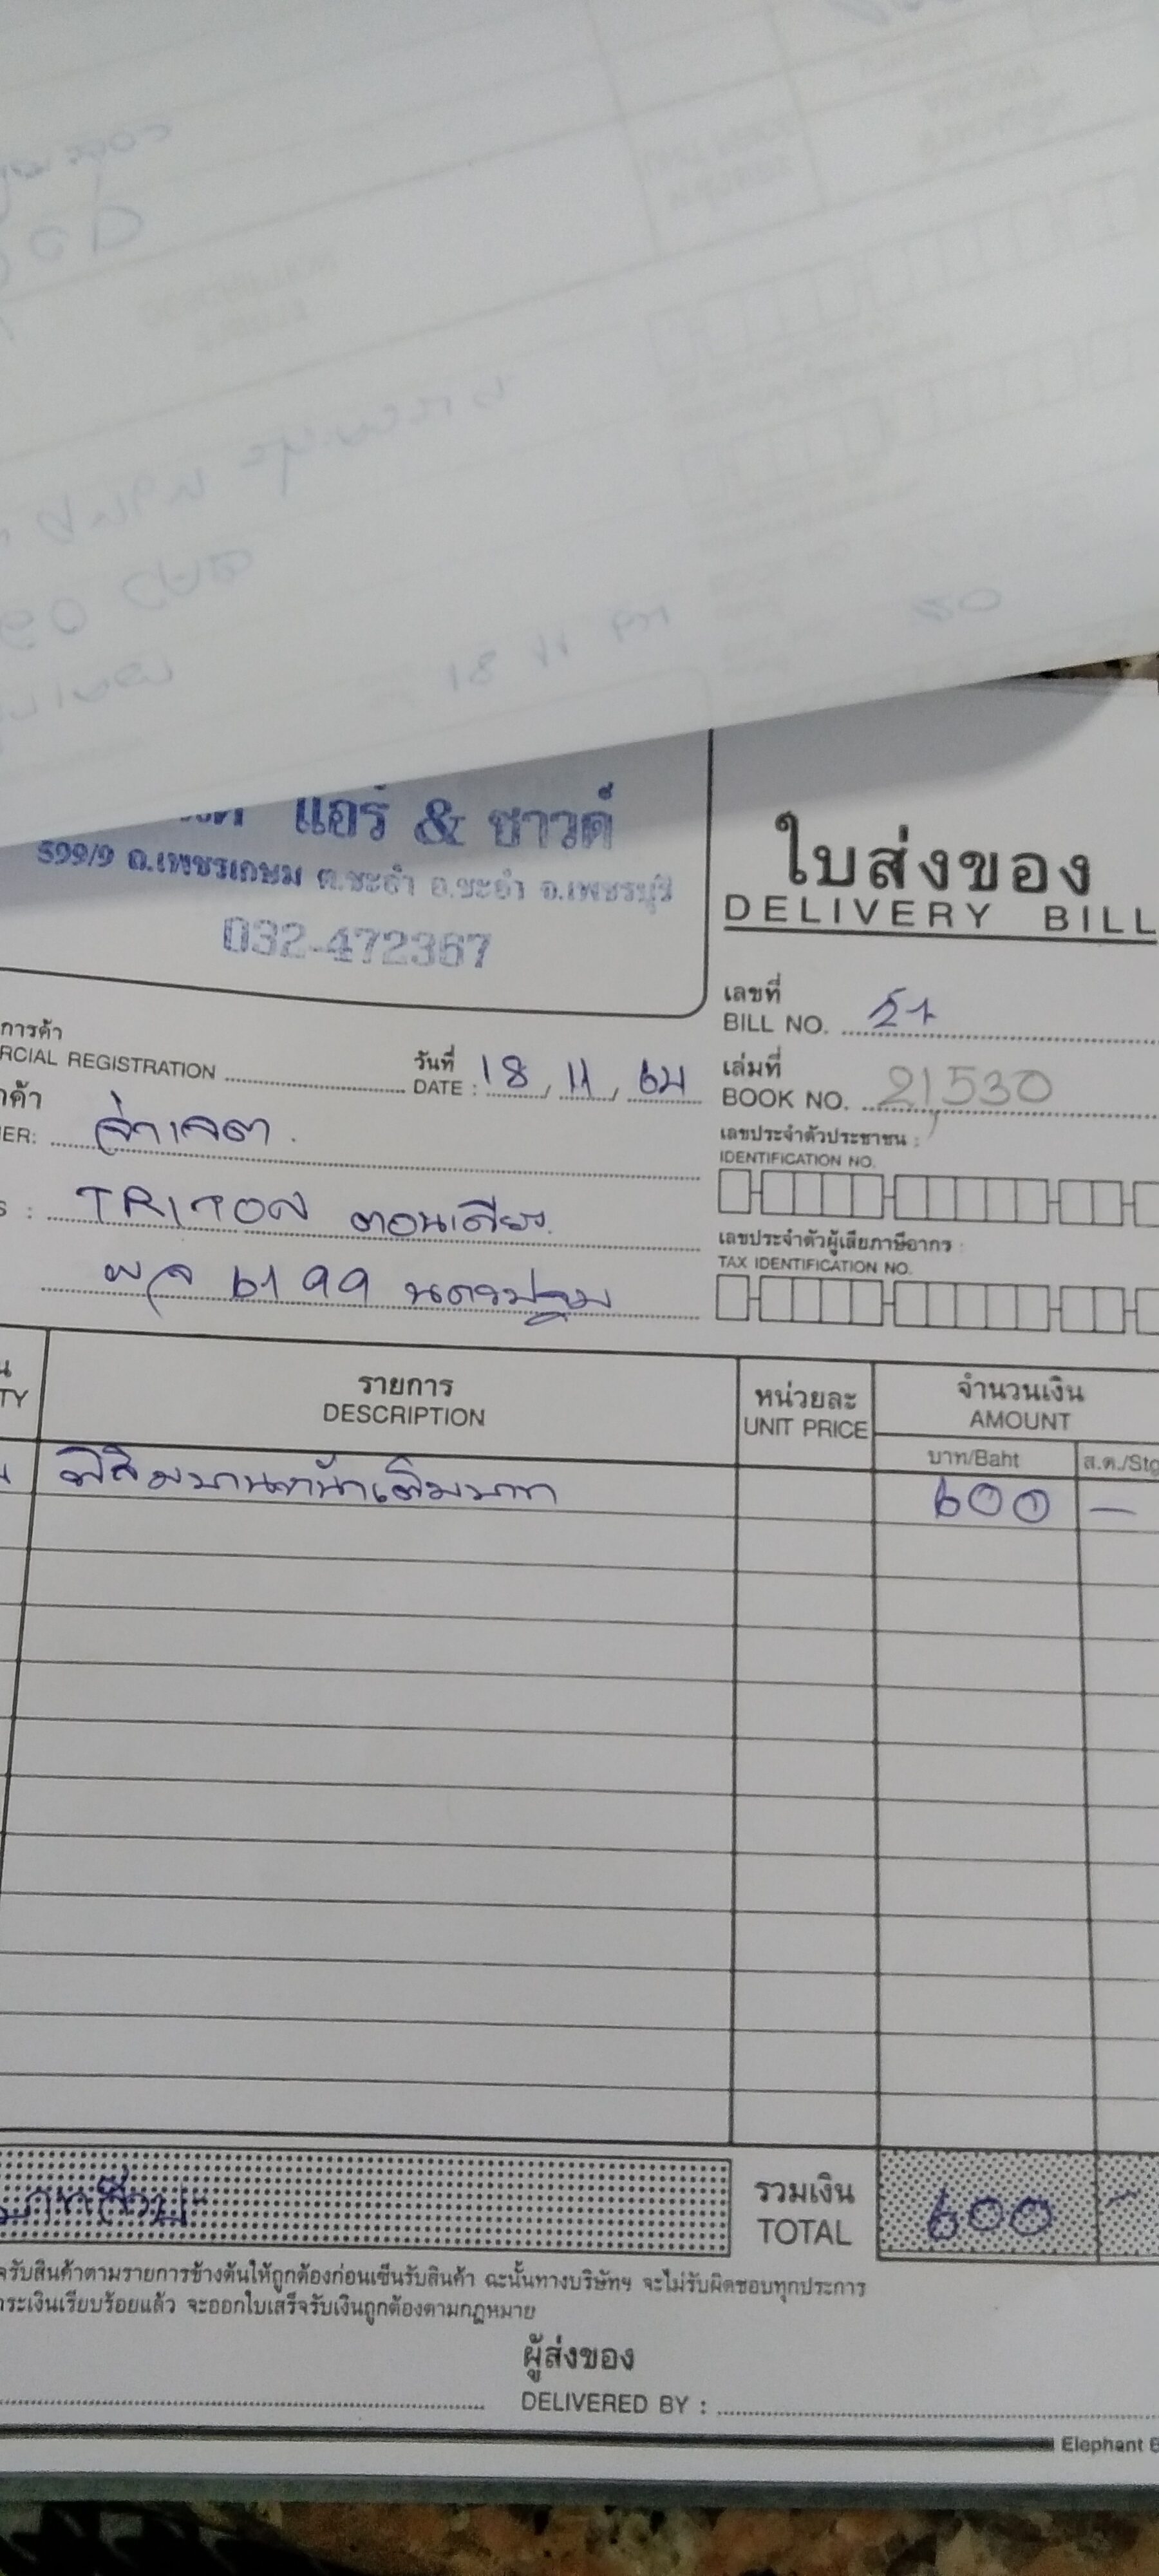 แอร์ & ซาวด์
599/9 ถ.เพชรเกษม ต.ชะอำ อ.ชะอำ จ.เพชรบุรี
032-472367
ใบส่งของ
DELIVERY BILL
เลขที่
BILL NO. 27
การค้า
RCIAL REGISTRATION
วันที่
DATE : 18 / 11 / 64
เล่มที่
BOOK NO. 21530
เลขประจำตัวประชาชน :
IDENTIFICATION NO.
ค้า
ER: จ่าเจต
S : TRITON ตอนเดียว
ผจ 6199 นครปฐม
เลขประจำตัวผู้เสียภาษีอากร :
TAX IDENTIFICATION NO.
น
TY
รายการ
DESCRIPTION
หน่วยละ
UNIT PRICE
จำนวนเงิน
AMOUNT
บาท/Baht
ส.ต./Stg
ฟิล์มบานหน้าเต็มบาน
600 –
รวมเงิน
TOTAL
600 –
รับสินค้าตามรายการข้างต้นให้ถูกต้องก่อนเซ็นรับสินค้า ฉะนั้นทางบริษัทฯ จะไม่รับผิดชอบทุกประการ
ระเงินเรียบร้อยแล้ว จะออกใบเสร็จรับเงินถูกต้องตามกฎหมาย
ผู้ส่งของ
DELIVERED BY :
Elephant